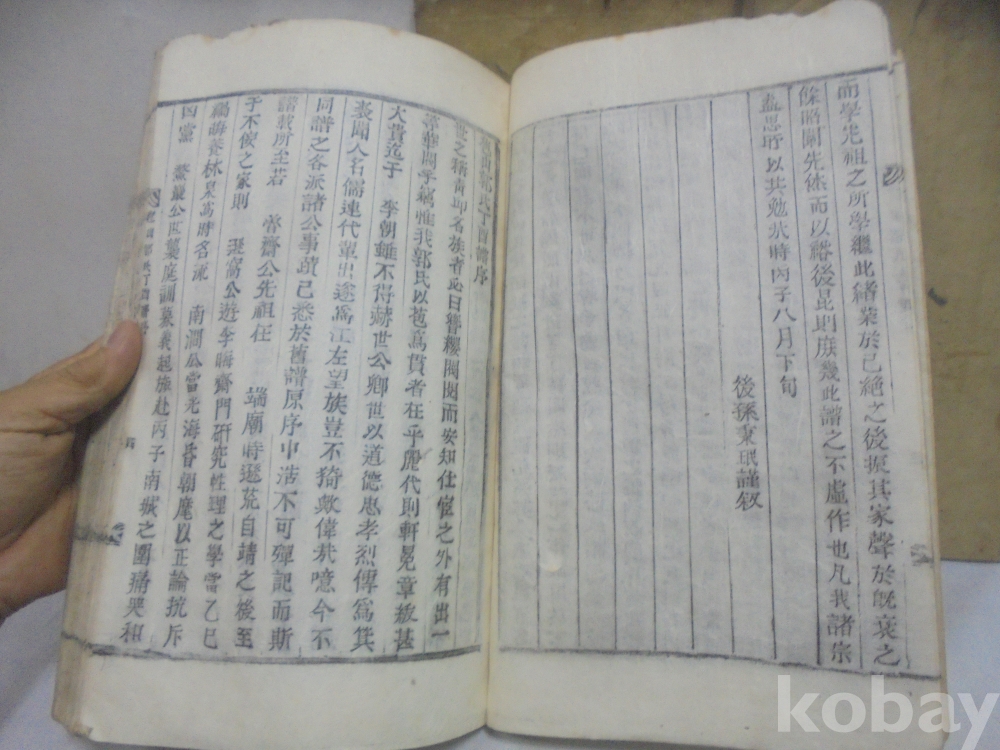 而學先祖之所學繼此緖業於已絶之後振其家聲於旣衰之
餘昭闡先休而以裕後昆則庶幾此譜之不虛作也凡我諸宗
盍思所以共勉哉時丙子八月下旬
後孫秉珉謹叙
丁酉譜序
世之稱貴卽名族者必曰簪纓閥閱而安知仕宦之外有出一
等華閥乎竊惟我郭氏以苞爲貫者在乎麗代則軒冕章紱甚
大貴迄于 李朝雖不得赫世公卿世以道德忠孝烈傳爲箕
裘聞人名儒連代輩出遂爲江左望族豈不猗歟偉哉噫今不
同譜之各派諸公事蹟已悉於舊譜原序中浩不可殫記而斯
譜載所至若 齋公先祖在 端廟時遯荒自靖之後至
于不佞之家則 窩公遊李晦齋門硏究性理之學當乙巳
禍晦養林泉爲時名流 南澗公當光海昏朝麾以正論抗斥
凶黨 巖公 襲庭訓募義起旅赴丙子南城之圍痛哭和
kobay